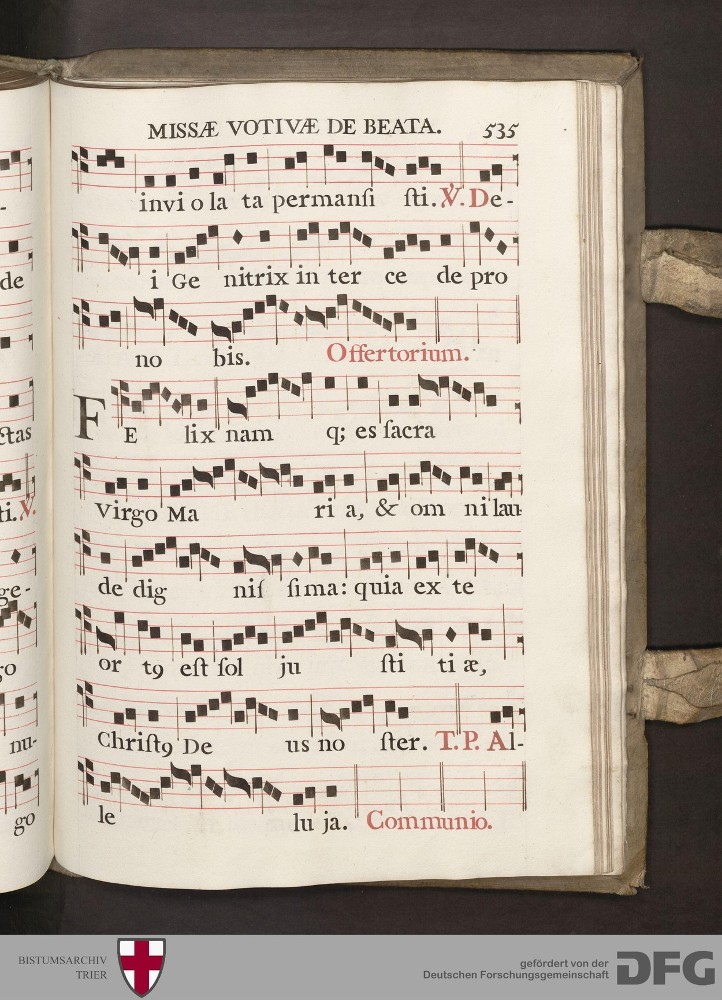 MISSÆ VOTIVÆ DE BEATA. 535
invi o la ta permanſi ſti. ℣. De-
i Ge nitrix in ter ce de pro
no bis. Offertorium.
FE lix nam q; es ſacra
Virgo Ma ri a, & om ni lau-
de dig niſ ſima: quia ex te
or tꝯ eſt ſol ju ſti ti æ,
Chriſtꝯ De us no ſter. T. P. Al-
le lu ja. Communio.
de
ctas
ti. ℣.
ge-
go
nu-
go
BISTUMSARCHIV
TRIER
gefördert von der
Deutschen Forschungsgemeinschaft
DFG